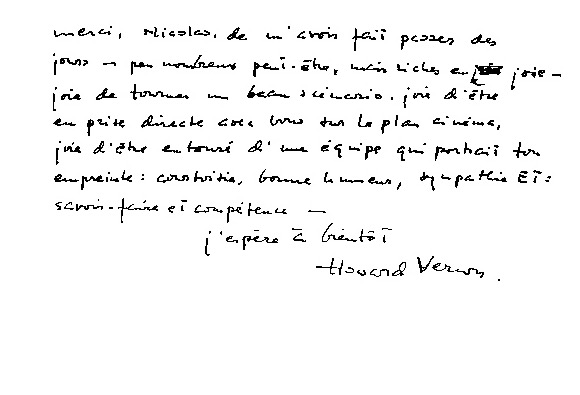 merci, Nicolas, de m'avoir fait passer des
jours – peu nombreux peut-être, mais riches en joie –
joie de tourner un beau scénario, joie d'être
en prise directe avec vous sur le plan cinéma,
joie d'être entouré d'une équipe qui portait ton
empreinte : courtoisie, bonne humeur, sympathie ET :
savoir-faire et compétence –
j'espère à bientôt
Howard Vernon.